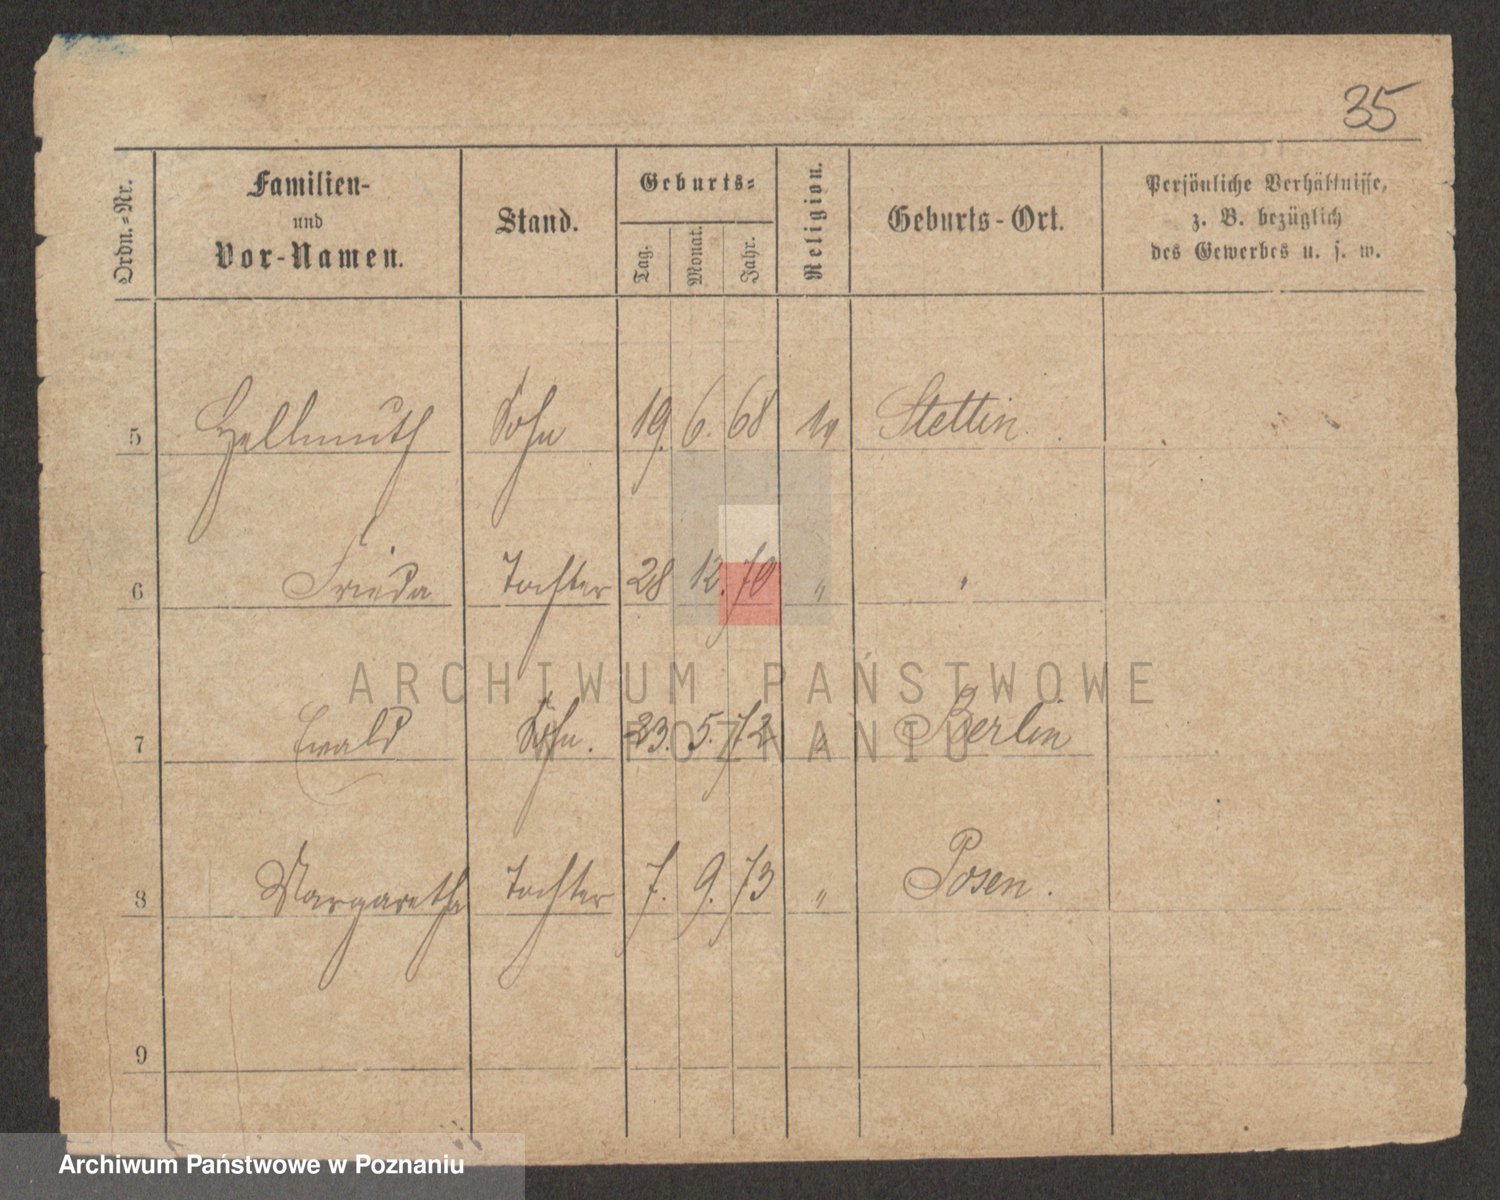 35
Ordn.-Nr. Familien- und Vor-Namen. Stand. Geburts- Tag. Monat. Jahr. Religion. Geburts-Ort. Persönliche Verhältnisse, z. B. bezüglich des Gewerbes u. s. w.
5 Hellmuth Sohn 19. 6. 68 Stettin.
6 Frieda Tochter 28 12. 70 " "
7 Ewald Sohn. 23. 5. 72 " Berlin
8 Margaretha Tochter 7. 9. 73 " Posen.
9
ARCHIWUM PAŃSTWOWE
W POZNANIU
Archiwum Państwowe w Poznaniu